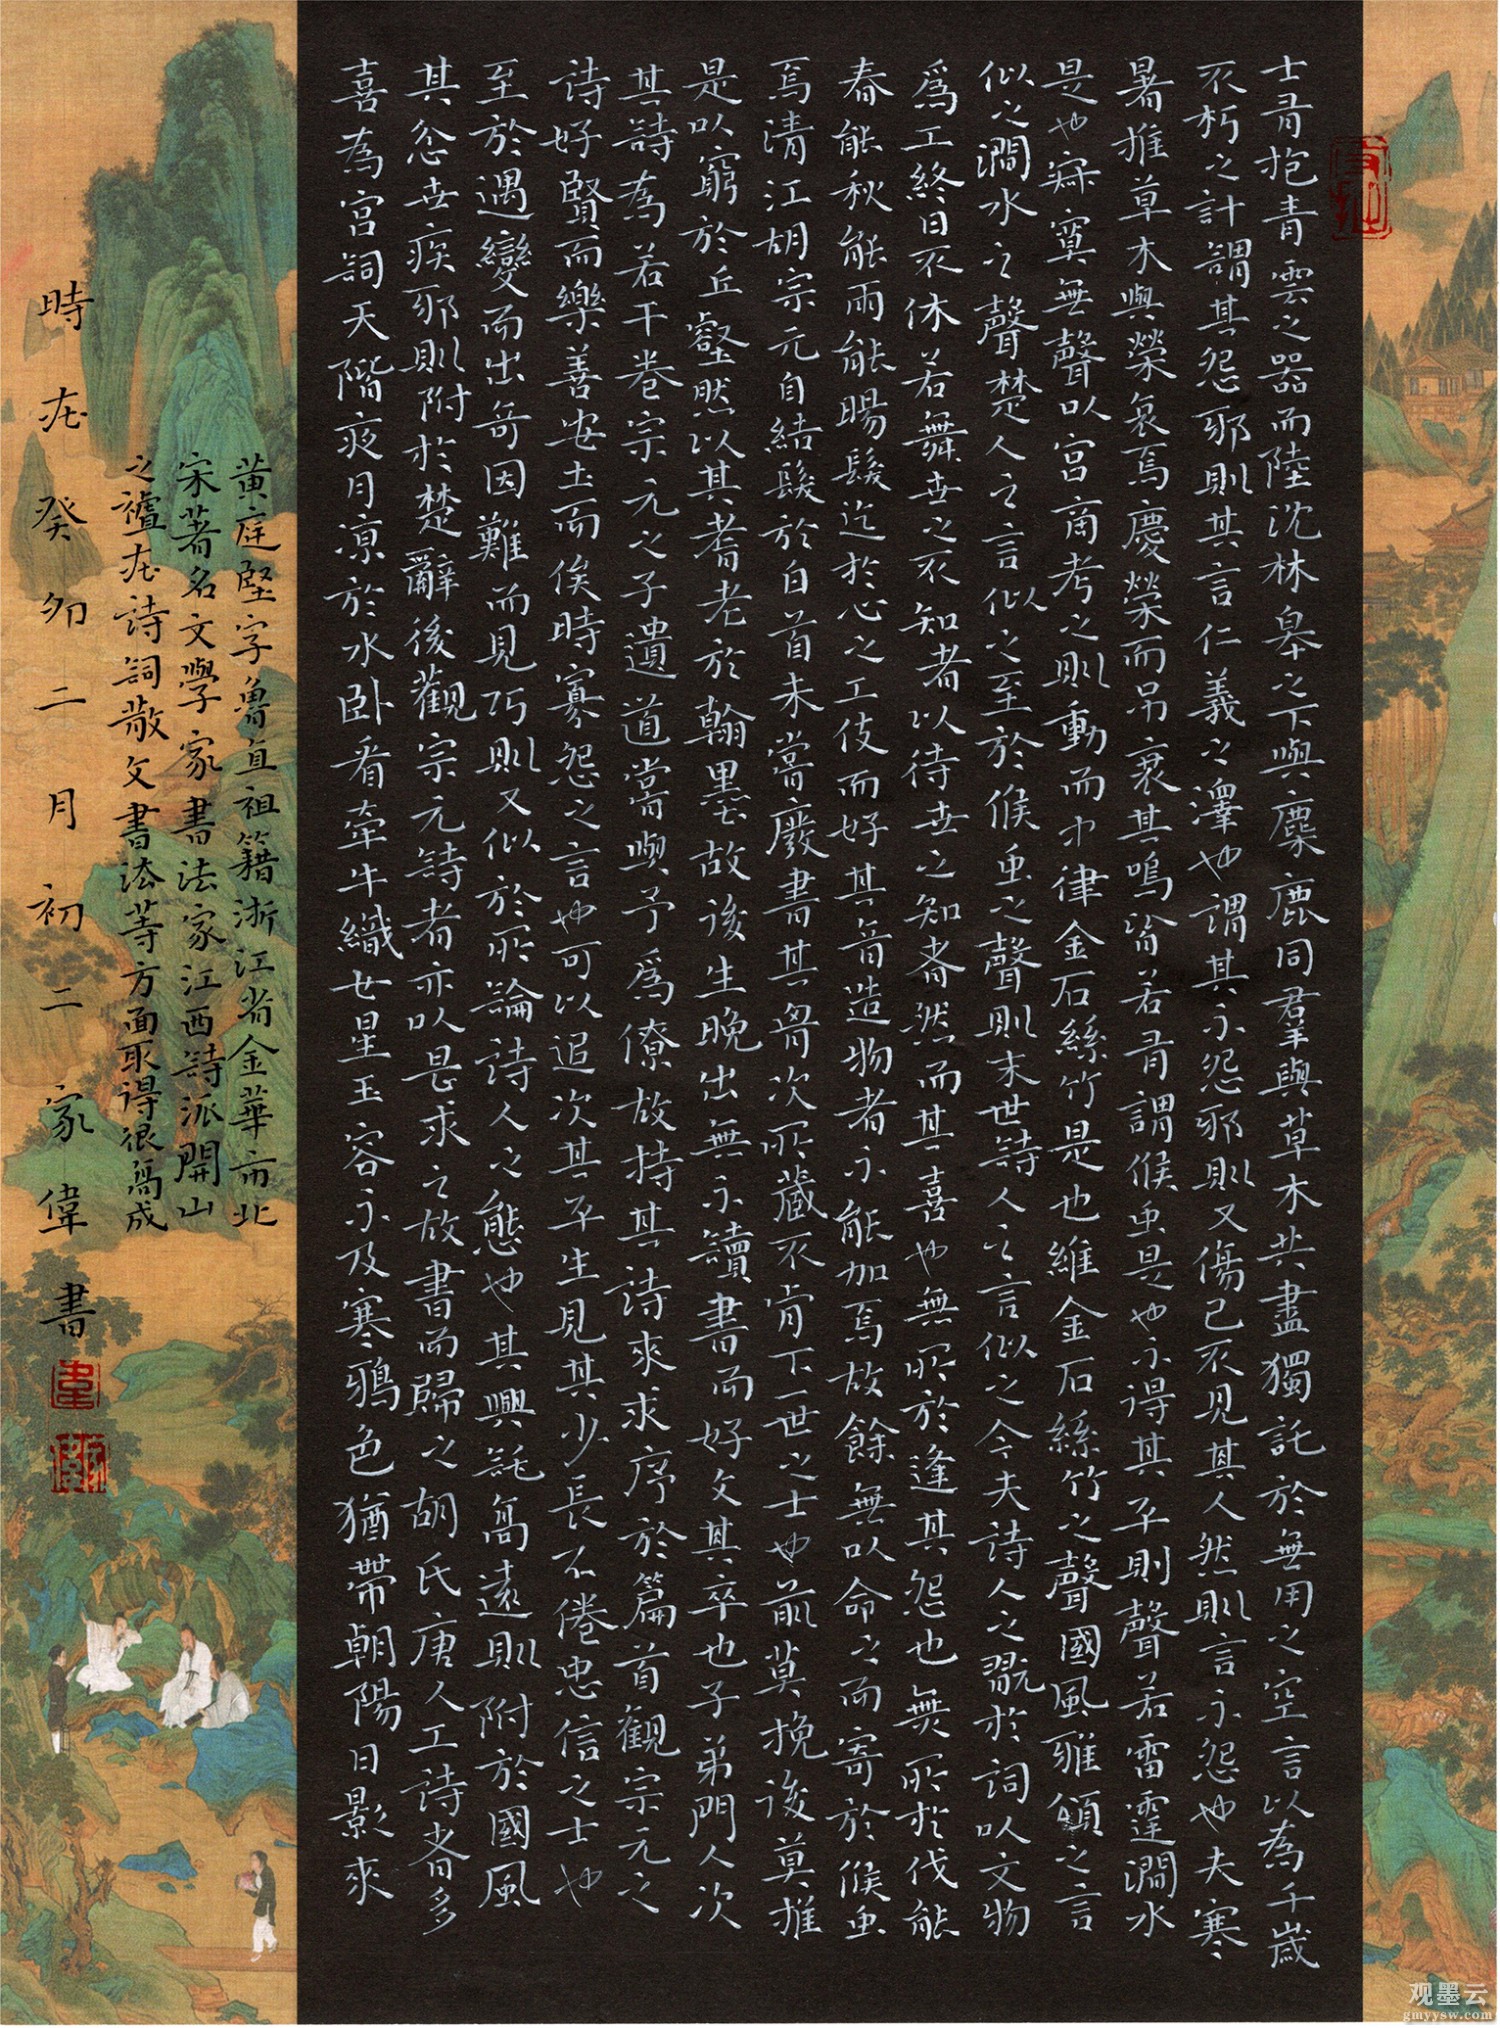 士有抱青雲之器而陸沈林皋之下與麋鹿同群與草木共盡獨託於無用之空言以為千歲
不朽之計謂其怨邪則其言仁義之澤也謂其不怨邪則又傷已不見其人然則其言不怨也夫寒
暑推草木與榮衰焉慶榮而吊衰其鳴皆若有謂候虫是也不得其平則聲若雷霆澗水
是也寂寞無聲以宮商考之則動而中律金石絲竹是也維金石絲竹之聲國風雅頌之言
似之澗水之聲楚人之言似之至於候虫之聲則末世詩人之言似之今夫詩人之翫於詞以文物
為工終日不休若舞世之不知者以待世之知者然而其喜也無所於逢其怨也無所於伐能
春能秋能雨能暘髮迄於心之工伎而好其音造物者不能加焉故餘無以命之而寄於候虫
焉清江胡宗元自結髮於白首未嘗廢書其胷次所藏不肯下一世之士也前莫挽後莫推
是以窮於丘壑然以其耆老於翰墨故後生晚出無不讀書而好文其卒也子弟門人次
其詩為若干卷宗元之子遺道嘗與予為僚故持其詩來求序於篇首觀宗元之
詩好賢而樂善安土而俟時寡怨之言也可以追次其平生見其少長不倦忠信之士也
至於遇變而出奇因難而見巧則又似於所論詩人之態也其興託高遠則附於國風
其忿世疾邪則附於楚辭後觀宗元詩者亦以是求之故書而歸之胡氏唐人工詩者多
喜為宮詞天階夜月涼於水臥看牽牛織女星玉容不及寒鴉色猶帶朝陽日影來
黃庭堅字魯直祖籍浙江省金華市北
宋著名文學家書法家江西詩派開山
之祖在詩詞散文書法等方面取得很高成
時在癸卯二月初二家偉書
观墨云
gmyysw.com